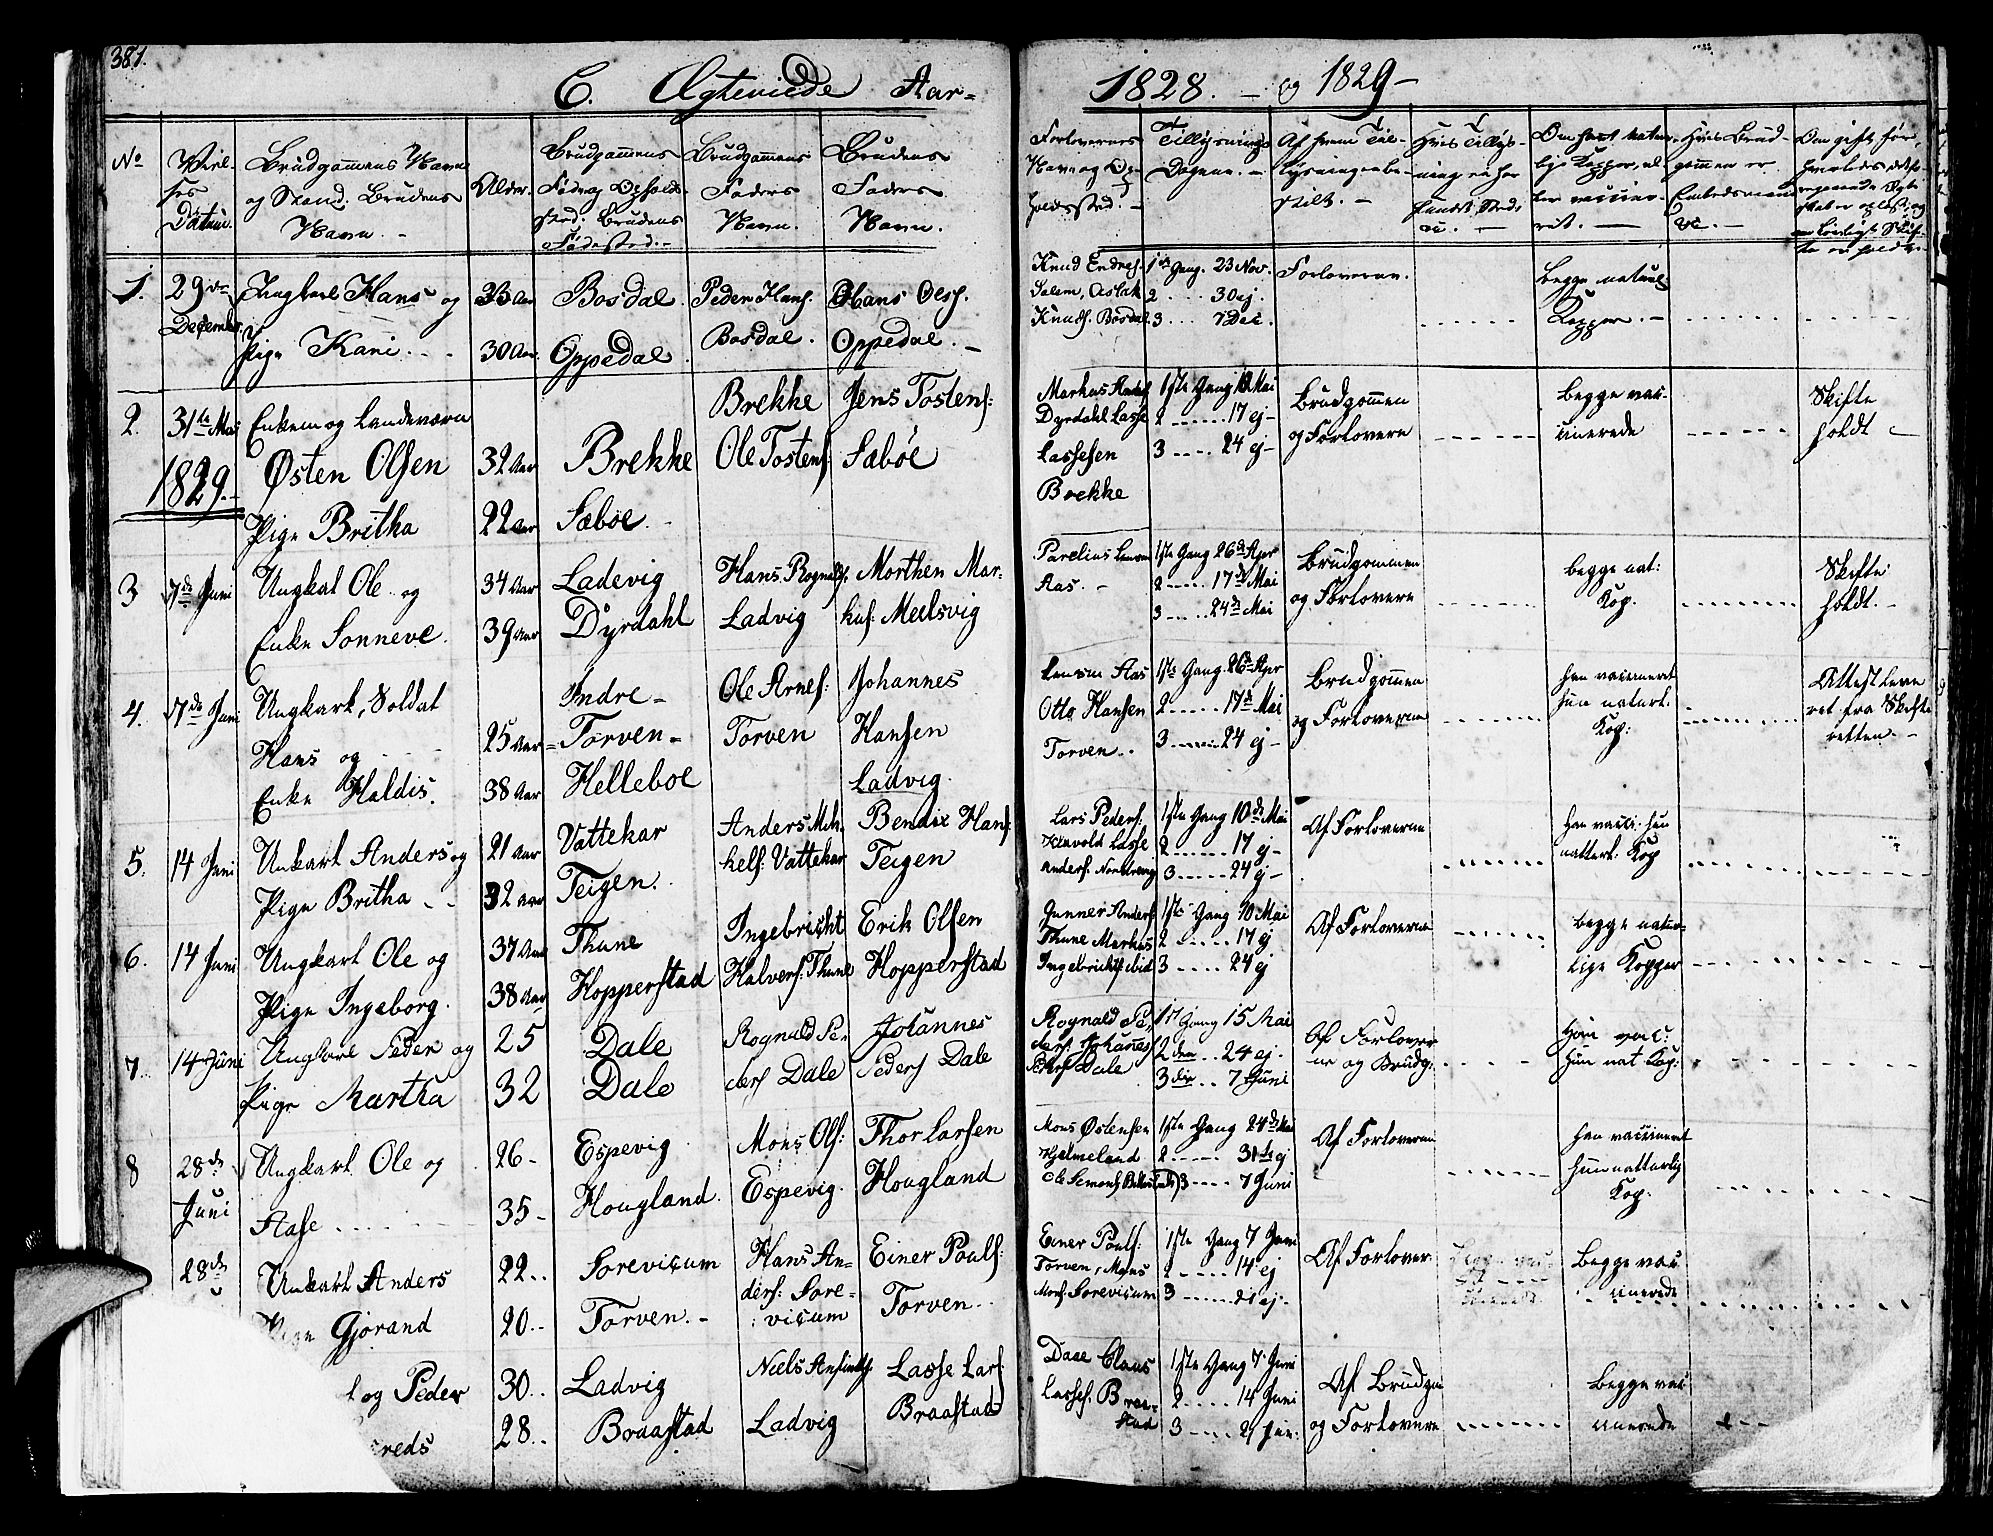 381.
C. Ægteviede Aar- 1828. - og 1829-
No
Datum.
Brudgommens Navn
og Stand. Brudens
Navn. -
Alder.
Brudgommens
Føde og Opholds-
sted. Brudens
Fødested. -
Brudgommens
Faders
Navn.
Brudens
Faders
Navn.
Forlovernes
Navn og Op-
holdssted. -
Tillysnings
Dagene. -
Af hvem Til-
lysningen be-
stilt. -
Om havt natur-
lige Kopper, el-
ler vaccine-
ret. -
Hvis Brud-
gommen er
Embedsmand
1. 29de
December
Ungkarl Hans og
Pige Kari
33 Aar
30 Aar.
Bosdal
Oppedal
Peder Hans.
Bosdal.
Hans Oles.
Oppedal. -
Knud Endres.
Salem, Aslak
Knuds. Bosdal
1ste Gang. 23 Nov.
2 . . . 30 ej.
3 . . . 7 Dec.
Forloverne.
Begge naturl.
Kopper. -
2. 31te Mai
1829. -
Enkem og Landeværn
Østen Olsen
Pige Britha
32 Aar
22 Aar
Brekke
Sæbøe
Brekke
Ole Tostens.
Jens Tostens:
Sæbøe
Dyrdahl Lasse
Lassesen
Brekke
1ste Gang 10 Mai
2 ...... 17 ej-
3 .... 24 ej-
Brudgommen
og Forlovere
Begge vac-
cinerede
Skifte
holdt -
3 7de Juni
Ungkal Ole og
Enke Sønneve.
34 Aar
39 Aar
Ladevig
Dyrdahl
Hans Rognalds.
Ladvig
Morthen Mar-
kus: Meelsvig
Aas. -
1ste Gang 26de Apr
2 ..... 17de Mai
3 ..... 24de Mai
Brudgommen
og Forlovere
Begge nat:
Kop.
Skifte
holdt. -
4. 7de Juni
Ungkarl, Soldat
Hans og
Enke Haldis.
25 Aar
38 Aar
Indre-
Torven-
Helleboe
Ole Arnes:
Torven
Johannes
Hansen
Ladvig.
Aas
Otto Hansen
Torven. .
1ste Gang. 26de Apr
2 ...... 17de Mai
3 ..... 24 ej -
Brudgommen
og Forloverne
Han vaccineret
hun naturl.
Kop:
Attest leve
ret fra Skifte
retten. -
5. 14 Juni
Unkarl Anders og
Pige Britha
21 Aar
32 Aar
Vattekar
Teigen.
Anders Mik-
kels: Vattekar
Bendix Hans:
Teigen
Lars Peders:
Lasse
Anders.
1ste Gang 10de Mai
2 ....... 17 ej-
3 ..... 24 ej-
Af Forloverne
Han vacci. hun
natterl. Kop
6. 14 Juni
Ungkarl Ole og
Pige Ingeborg.
37 Aar
38 Aar
Thune
Hopperstad
Ingebricht
Halvers: Thune
Erik Olsen
Hopperstad
Gunner Anders:
Thune Markus
Ingebrichts ibid
1ste Gang 10 Mai
2 ..... 17 ej
3 .... 24 ej
Af Forloverne
Begge natur-
lige Kopper
7. 14 Juni
Ungkarl Peder og
Pige Martha
25
32
Dale
Dale
Rognald Pe-
ders Dale
Johannes
Peders Dale
Rognald Pe-
ders. Johanes
Peders Dale
1ste Gang 15 Mai
2den .. 24 ej.
3die .. 7 Juni
Af Forlover-
ne og Brudg:
Han vac:
Hun nat Kop:
8 28de
Juni
Ungkarl Ole og
Aase
26-
35-
Espevig
Hougland.
Mons Ols:
Espevig.
Thor Larsen
Hougland
Mons Østensen
Hjelmeland
Ole Simons
1ste Gang 24de Mai
2 ..... 31te ej
3 .... 7 Juni
Af Forloverne
Han vaccineret
Hun natturlig
Kop.
28de
Unkarl Anders
Pige Gjørand
22..
20..
Sorevicum
Torven. -
Hans An-
ders: Sore-
vicum
Einer Pouls:
Torven. .
Einer Pouls:
Torven, Mons
Mons. Sorevicum
1ste Gang 7 Juni
2 ..... 14 ej
3 ..... 21 ej-
Af Forlover
Begge vac
cinerede
l og Peder
reds
30..
28..
Ladvig
Braastad
Niels
Ladvig
Lasse Lars
Braastad
Daae Claus
Lasses. Braa-
stad
1ste Gang 7 Juni
2 ..... 14 Juni
3 .... 21 Jun:
Af Brudgo
og Forlovere
Begge vac
cinerede